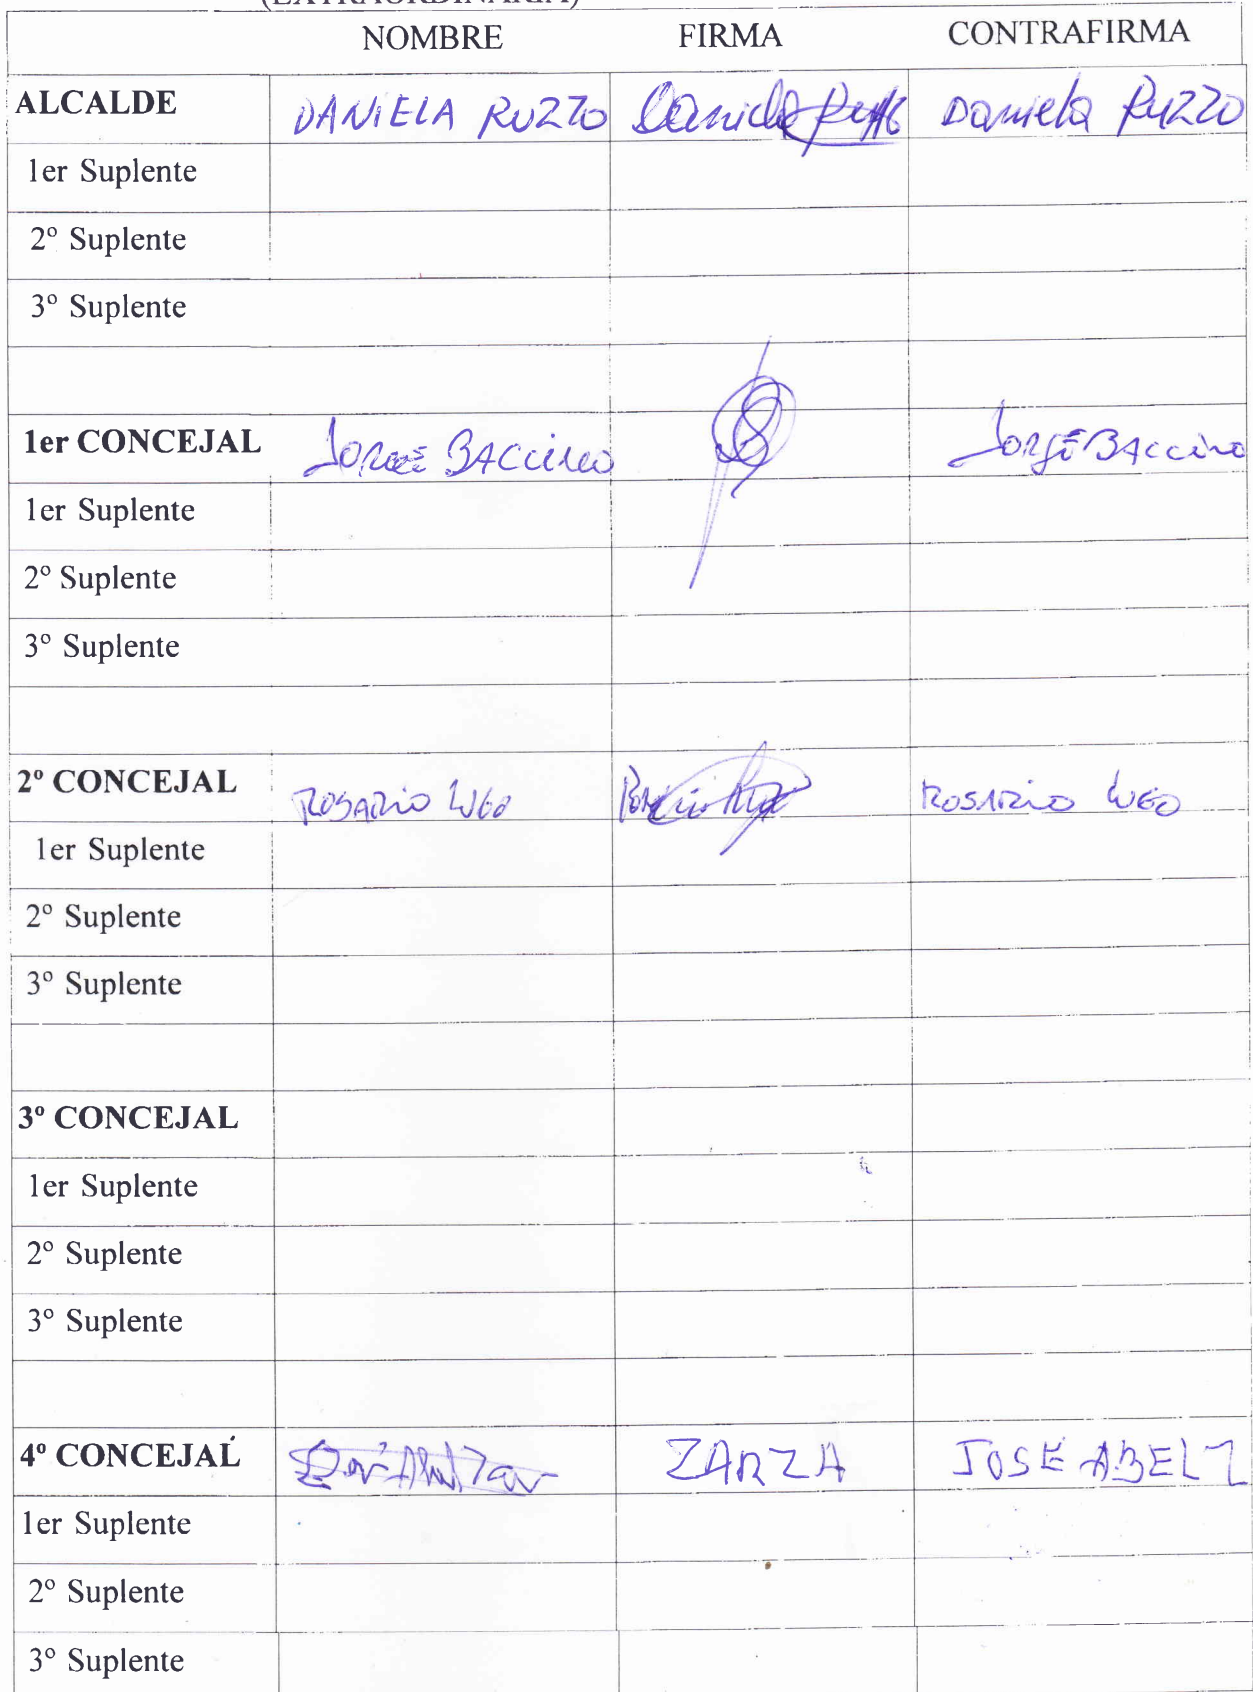 (EXTRAORDINARIA)
NOMBRE FIRMA CONTRAFIRMA
ALCALDE DANIELA RUZZO Daniela Daniela RUZZO
1er Suplente
2º Suplente
3º Suplente
1er CONCEJAL JORGE BACCINO JORGE BACCINO
1er Suplente
2º Suplente
3º Suplente
2º CONCEJAL ROSARIO LUGO ROSARIO LUGO
1er Suplente
2º Suplente
3º Suplente
3º CONCEJAL
1er Suplente
2º Suplente
3º Suplente
4º CONCEJAL ZARZA JOSE ABEL Z
1er Suplente
2º Suplente
3º Suplente